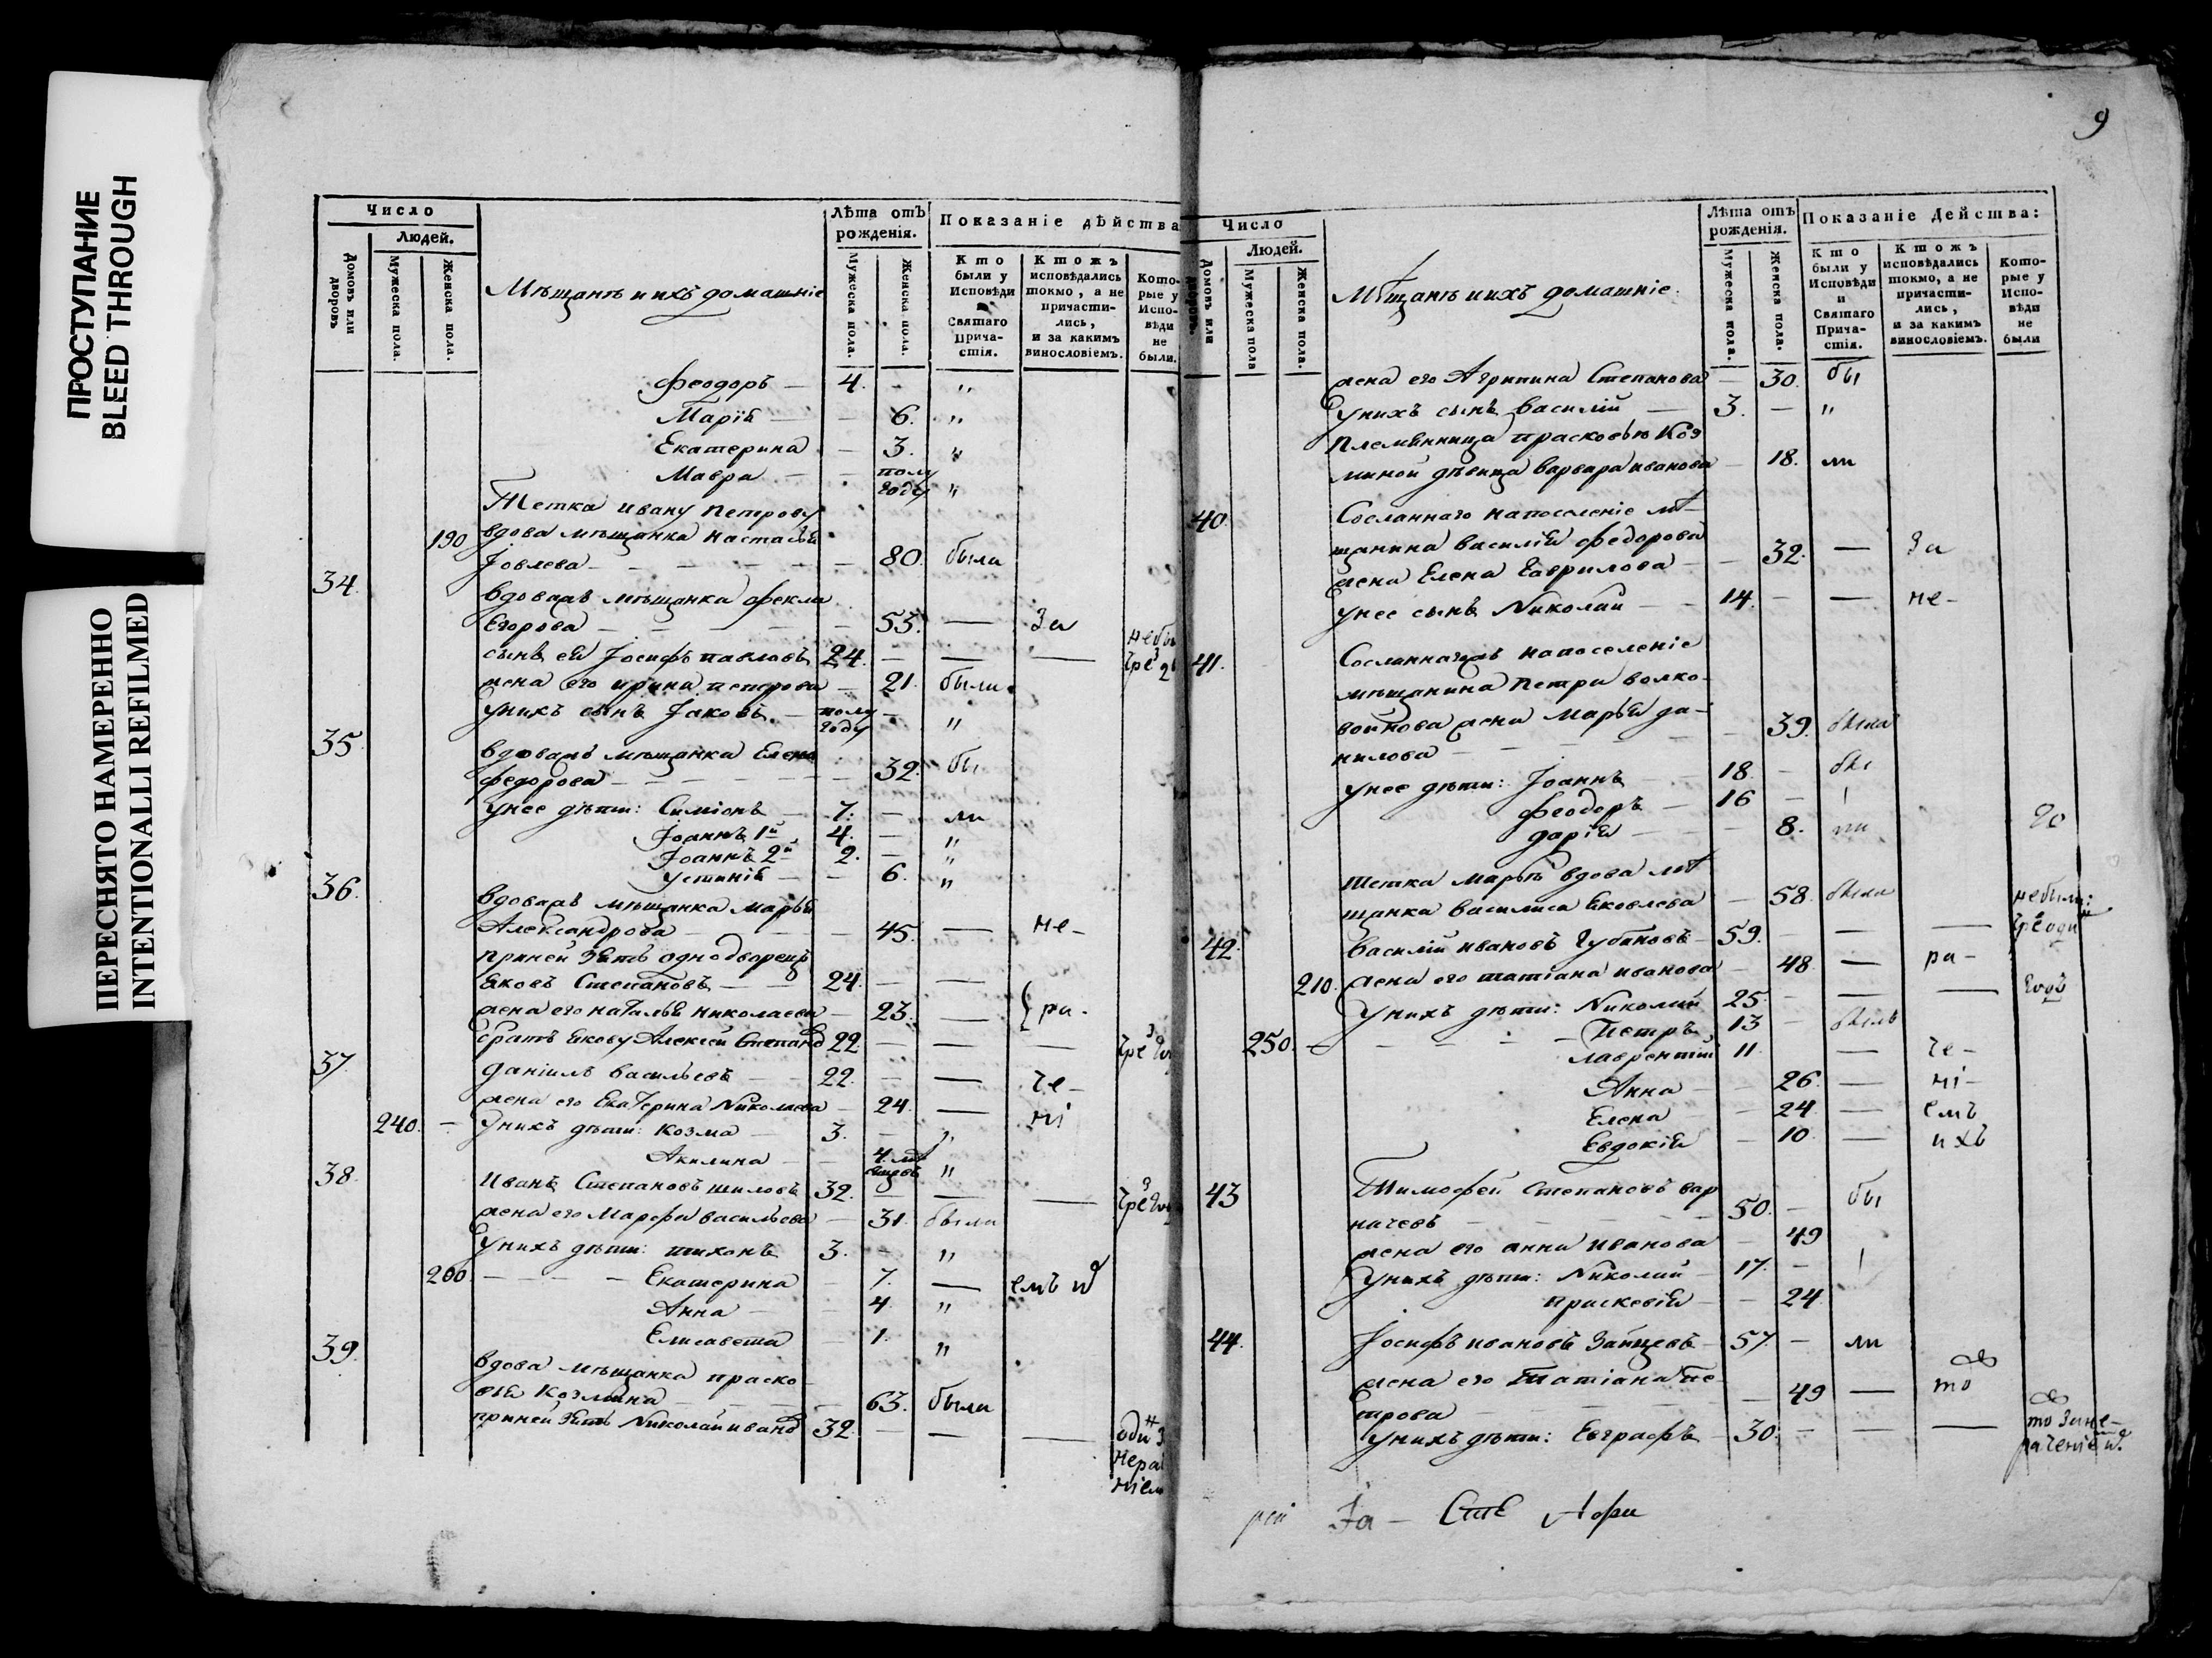 ПРОСТУПАНИЕ
BLEED THROUGH
ПЕРЕСНЯТО НАМЕРЕННО
INTENTIONALLI REFILMED
Число
Людей.
Домовъ или дворовъ
Мужеска пола.
Женска пола.
Мѣщанѣ и ихъ домашніе
Лѣта отъ рожденія.
Мужеска пола.
Женска пола.
Показаніе дѣйства
Кто были у Исповѣди и Святаго Прича- стія.
Ктожъ исповѣдались токмо, а не причасти- лись, и за какимъ винословіемъ.
Кото- рые у Испо- вѣди не были.
Феодоръ — 4. - „
Марія — - 6. „
Екатерина - 3. „
Мавра - полу году „
Тетка Ивану Петрову
190 вдова мѣщанка Настасья
Іовлева - 80. была
34. Вдовая мѣщанка Фекла
Егорова - 53. — За
сынъ ея Іосифъ Павловъ 24. - — —
жена его Ирина Петрова - 21. были
У нихъ сынъ Іаковъ - полу году - „
35. Вдовая мѣщанка Елена
Федорова - 32. бы
У нее дѣти: Симіонъ 7. - ли
Іоаннъ 1й 4. - „
Іоаннъ 2й 2. - „
Устинія - 6. „
36. Вдовая мѣщанка Марья
Александрова - 45. — не-
При ней зять однодворецъ
Яковъ Степановъ - 24. - —
жена его Наталья Николаева - 23. — ра-
Братъ Якову Алексей Степановъ 22. - — —
37. Даніилъ Васильевъ - 22. - — че-
жена его Екатерина Николаева - 24. — ні
240. - У нихъ дѣти: Козма - 3. - „
Акилина - 4. „
38. Иванъ Степановъ Шиловъ 32. - — —
жена его Марфа Васильева - 31. были
У нихъ дѣти: Тихонъ 3. - „
200. - Екатерина - 7. — емъ
Анна - 4. „
Елисавета - 1. „
39. Вдова мѣщанка Праско-
вья Козмина - 63. была
При ней зять Николай Ивановъ 32. - — —
9
Число
Людей.
Домовъ или дворовъ.
Мужеска пола
Женска пола.
Мѣщанѣ и ихъ домашніе.
Лѣта отъ рожденія.
Мужеска пола.
Женска пола.
Показаніе Действа:
Кто были у Исповѣди и Святаго Прича- стія.
Ктожъ исповѣдались токмо, а не причасти- лись, и за какимъ винословіемъ.
Кото- рые у Испо- вѣди не были
жена его Агрипина Степанова - 30. бы
У нихъ сынъ Василій - 3. - „
Племянница Прасковью Коз
миной дѣвица Варвара Иванова - 18. ли
40. Сосланнаго на поселеніе мѣ-
щанина Василія Федорова
жена Елена Гаврилова - 32. — За
У нее сынъ Николай - 14. - — не-
41. Сосланнагожъ на поселеніе
мѣщанина Петра Волко-
войнова жена Марья Да-
нилова - 39. была
У нее дѣти: Іоаннъ 18. - бы
Феодоръ - 16 -
Дарія - 8. ли
Тетка Марьѣ вдова мѣ
щанка Василиса Яковлева - 58. была
42. Василій Ивановъ Губановъ - 59. - — —
210. жена его Татіана Иванова - 48. — ра-
У нихъ дѣти: Николай 25. - — —
250. - Петръ 13 - былъ
Лаврентій 11 - — че-
Анна - 26. — ні-
Елена - 24 — емъ
Евдокія - 10 — ихъ
43 Тимофей Степановъ Вар
начевъ - 50. - бы
жена его Анна Иванова - 49
У нихъ дѣти: Николай - 17. -
Праскевія - 24.
44. Іосифъ Ивановъ Зайцевъ - 57. - ли
жена его Татіана Пе-
трова - 49 — то
У нихъ дѣти: Евграфъ - 30. - — —
рей Іа- Сте